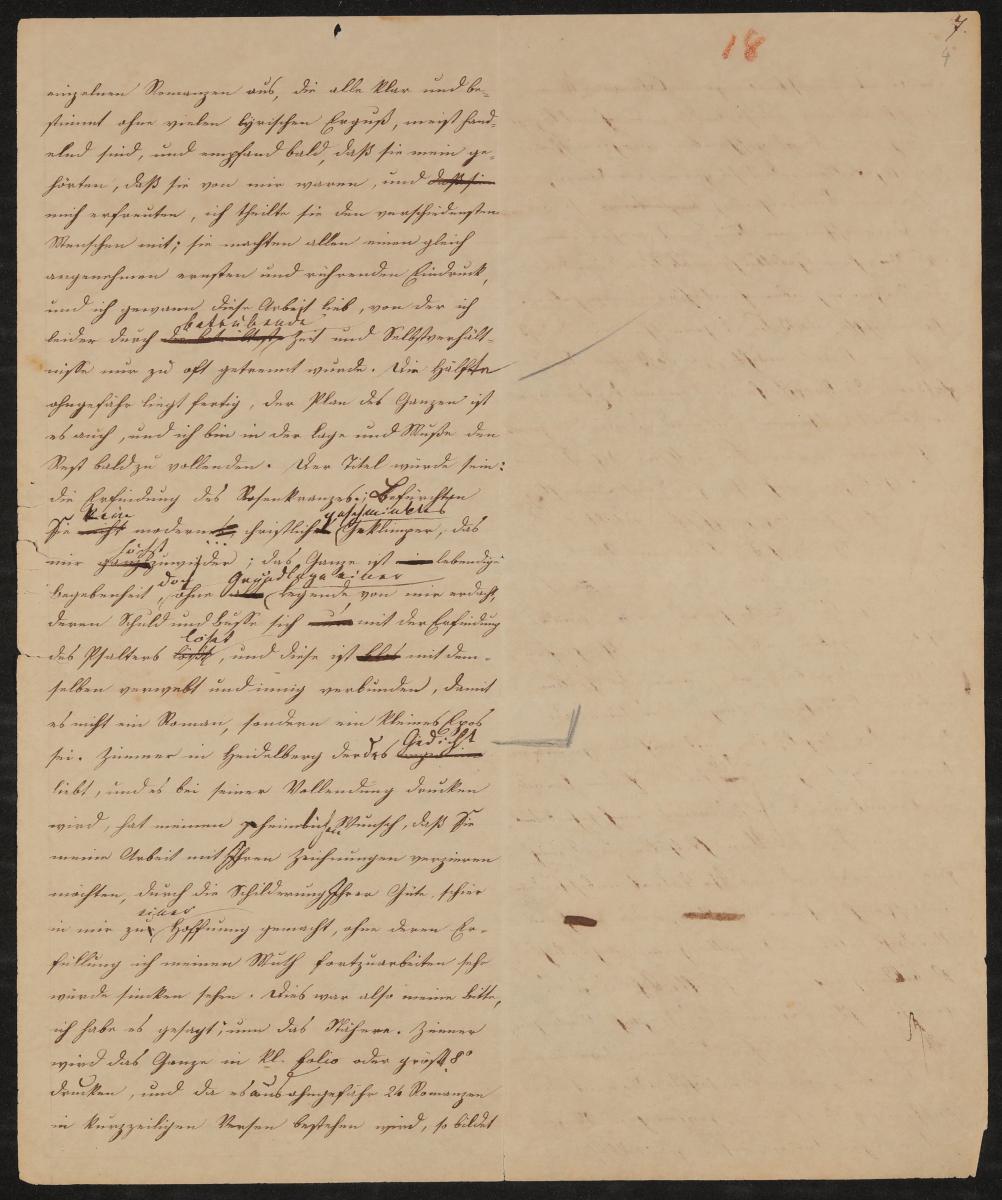 7.
4
18
einzelnen Romanzen aus, die alle klar und be-
stimmt ohne vielen lyrischen Erguß, meist hand-
elnd sind, und empfand bald, daß sie mein ge-
hörten, daß sie von mir waren, und daß sie
mich erfreuten, ich theilte sie den verschiedensten
Menschen mit; sie machten allen einen gleich
angenehmen ernsten und rührenden Eindruck,
und ich gewann diese Arbeit lieb, von der ich
betrübende
leider durch Zeit und Selbstverhält-
nisse nur zu oft getrennt wurde. Die Hälfte
ohngefähr liegt fertig, der Plan des Ganzen ist
es auch, und ich bin in der Lage und Muße den
Rest bald zu vollenden. Der Titel würde sein:
die Erfindung des Rosenkranzes; Befürchten
kein geschminktes
Sie nicht modernes, christliches Geklimper, das
höchst
mir ganz zuwider; das Ganze ist lebendige
doch Grundlage einer
Begebenheit, ohne Legende von mir erdacht,
deren Schuld und Busse sich mit der Erfindung
löset
des Psalters löset, und diese ist mit dem-
selben verwebt und innig verbunden, damit
es nicht ein Roman, sondern ein kleines Epos
Gedicht
sei. Zimmer in Heidelberg der das
liebt, und es bei seiner Vollendung drucken
wird, hat meinen geheimlichen Wunsch, daß Sie
meine Arbeit mit Ihren Zeichnungen verzieren
möchten, durch die Schilderung Ihrer Güte schier
einer
in mir zu Hoffnung gemacht, ohne deren Er-
füllung ich meinen Muth fortzuarbeiten sehr
würde sincken sehen. Dies war also meine Bitte,
ich habe es gesagt; nun das Nähere. Zimmer
wird das Ganze in kl. folio oder größt 8°
drucken, und da es aus ohngefähr 24 Romanzen
in kurzzeiligen Versen bestehen wird, so bildet